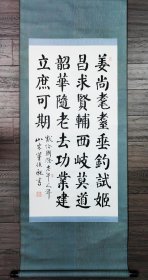 姜尚耄耋垂釣試姬
昌求賢輔西岐莫道
韶華隨老去功業建
立庶可期
國際老年人年
書